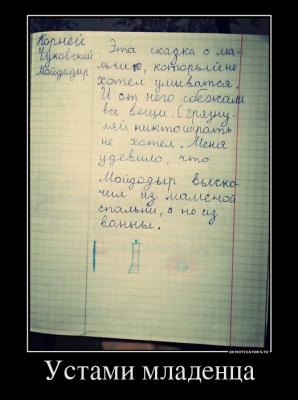 Корней
Чуковский
Мойдадыр
Эта сказка о ма-
льчике, который не
хотел умыватся.
И от него сбежали
все вещи. С грязну-
лей никто играть
не хотел. Меня
удевило, что
Мойдодыр выско-
чил из маменой
спальни, а не из
ванны.
DEMOTIVATORS.TO
Устами младенца